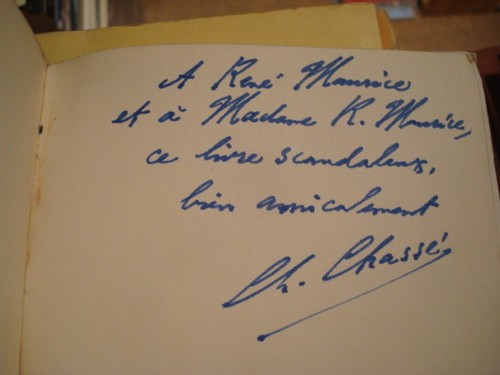 A René Maurice
et à Madame R. Maurice,
ce livre scandaleux,
bien amicalement
Ch. Chassé